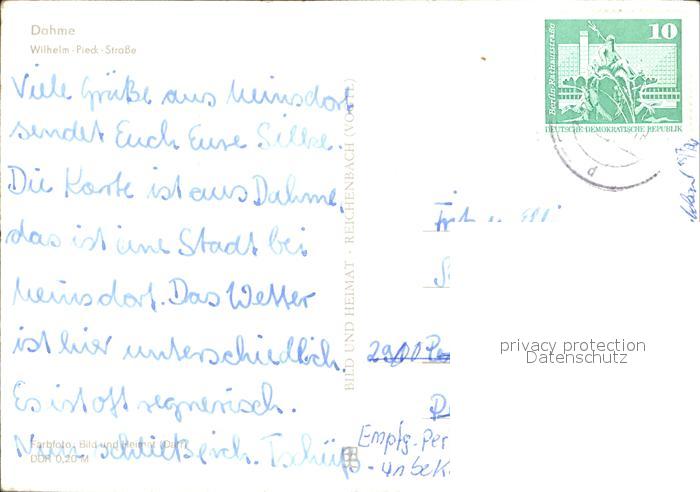 Dahme
Wilhelm-Pieck-Straße
Viele Grüße aus Meinsdorf
sendet Euch Eure Silke.
Die Karte ist aus Dahme,
das ist eine Stadt bei
Meinsdorf. Das Wetter
ist hier unterschiedlich.
Es ist oft regnerisch.
Nun schließe ich. Tschüß
Farbfoto: Bild und Heimat
DDR 0,20 M
BILD UND HEIMAT REICHENBACH (VOGTL)
Berlin-Rathausstraße
10
DEUTSCHE DEMOKRATISCHE REPUBLIK
Empfg.
- unbek.
privacy protection
Datenschutz